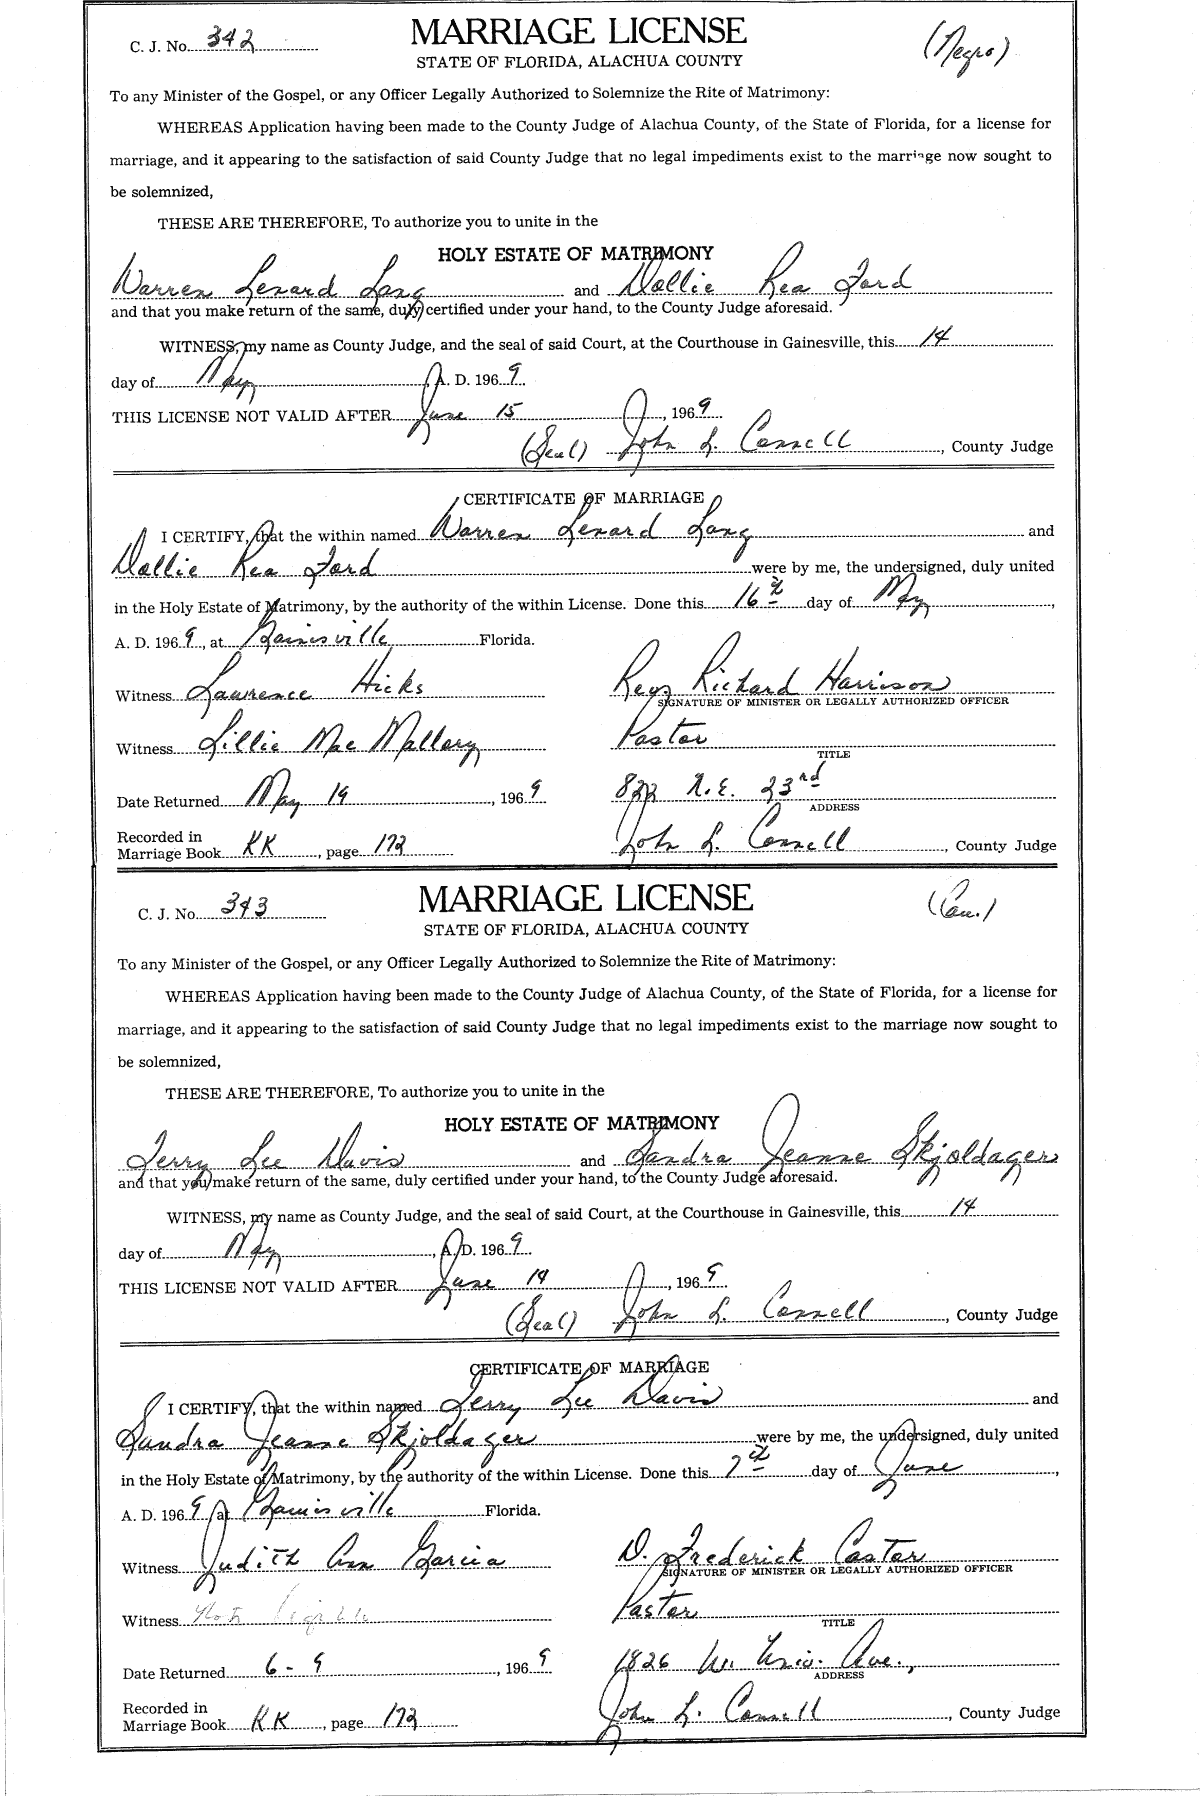 C. J. No. 342
MARRIAGE LICENSE
(Negro)
STATE OF FLORIDA, ALACHUA COUNTY
To any Minister of the Gospel, or any Officer Legally Authorized to Solemnize the Rite of Matrimony:
WHEREAS Application having been made to the County Judge of Alachua County, of the State of Florida, for a license for
marriage, and it appearing to the satisfaction of said County Judge that no legal impediments exist to the marriage now sought to
be solemnized,
THESE ARE THEREFORE, To authorize you to unite in the
HOLY ESTATE OF MATRIMONY
Warren Lenard Lang and Dollie Rea Ford
and that you make return of the same, duly certified under your hand, to the County Judge aforesaid.
WITNESS, my name as County Judge, and the seal of said Court, at the Courthouse in Gainesville, this 14
day of May, A. D. 1969
THIS LICENSE NOT VALID AFTER June 15, 1969
(Seal) John L. Connell, County Judge
CERTIFICATE OF MARRIAGE
I CERTIFY, that the within named Warren Lenard Lang and
Dollie Rea Ford were by me, the undersigned, duly united
in the Holy Estate of Matrimony, by the authority of the within License. Done this 16th day of May,
A. D. 1969, at Gainisville Florida.
Witness Lawrence Hicks Rev Richard Harrison
SIGNATURE OF MINISTER OR LEGALLY AUTHORIZED OFFICER
Witness Lillie Mae Mallory Pastor
TITLE
Date Returned May 19, 1969 822 N.E. 23rd
ADDRESS
Recorded in
Marriage Book KK, page 172 John L. Connell, County Judge
C. J. No. 343
MARRIAGE LICENSE
(Cau.)
STATE OF FLORIDA, ALACHUA COUNTY
To any Minister of the Gospel, or any Officer Legally Authorized to Solemnize the Rite of Matrimony:
WHEREAS Application having been made to the County Judge of Alachua County, of the State of Florida, for a license for
marriage, and it appearing to the satisfaction of said County Judge that no legal impediments exist to the marriage now sought to
be solemnized,
THESE ARE THEREFORE, To authorize you to unite in the
HOLY ESTATE OF MATRIMONY
Terry Lee Davis and Sandra Jeanne Skjoldager
and that you make return of the same, duly certified under your hand, to the County Judge aforesaid.
WITNESS, my name as County Judge, and the seal of said Court, at the Courthouse in Gainesville, this 14
day of May, A. D. 1969
THIS LICENSE NOT VALID AFTER June 14, 1969
(Seal) John L. Connell, County Judge
CERTIFICATE OF MARRIAGE
I CERTIFY, that the within named Terry Lee Davis and
Sandra Jeanne Skjoldager were by me, the undersigned, duly united
in the Holy Estate of Matrimony, by the authority of the within License. Done this 7th day of June,
A. D. 1969 at Gainisville Florida.
Witness Judith Ann Garcia D. Frederick Castor
SIGNATURE OF MINISTER OR LEGALLY AUTHORIZED OFFICER
Witness Not legible Pastor
TITLE
Date Returned 6-9, 1969 1826 W. Univ. Ave.,
ADDRESS
Recorded in
Marriage Book KK, page 172 John L. Connell, County Judge